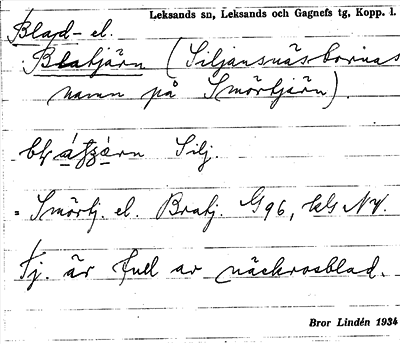 Leksands sn, Leksands och Gagnefs tg, Kopp. l.
Blad- el.
Blatjärn (Siljansnäsbornas
namn på Smörtjärn).
Silj.
= Smörtj. el. Bratj. G 96, kls NV.
Tj. är full av näckrosblad.
Bror Lindén 1934